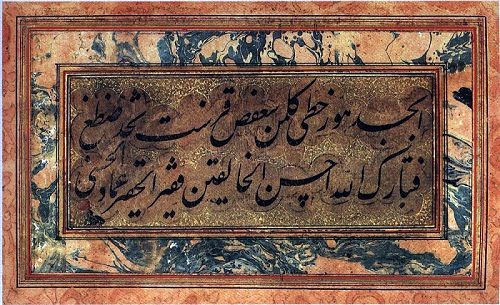 ابجد هوز حطی کلمن سعفص قرشت ثخذ ضظغ
فتبارک الله احسن الخالقین فقیر الحقیر عماد الحسنی